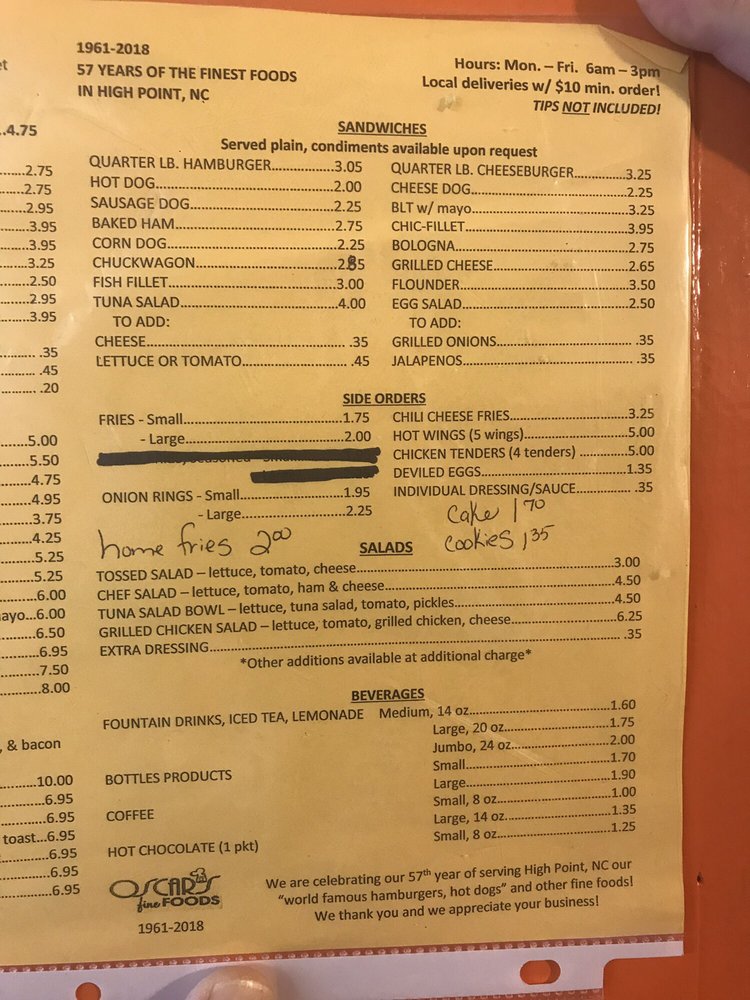 et
..4.75
...2.75
...2.75
...2.95
...3.95
...3.95
...3.25
...2.50
...2.95
...3.95
... .35
... .45
... .20
...5.00
...5.50
...4.75
...4.95
...3.75
...4.25
...5.25
...5.25
...6.00
ayo...6.00
...6.50
...6.95
...7.50
...8.00
, & bacon
...10.00
...6.95
...6.95
toast...6.95
...6.95
...6.95
...6.95
1961-2018
57 YEARS OF THE FINEST FOODS
IN HIGH POINT, NC
Hours: Mon. – Fri. 6am – 3pm
Local deliveries w/ $10 min. order!
TIPS NOT INCLUDED!
SANDWICHES
Served plain, condiments available upon request
QUARTER LB. HAMBURGER...3.05
HOT DOG...2.00
SAUSAGE DOG...2.25
BAKED HAM...2.75
CORN DOG...2.25
CHUCKWAGON...2.85
FISH FILLET...3.00
TUNA SALAD...4.00
TO ADD:
CHEESE... .35
LETTUCE OR TOMATO... .45
QUARTER LB. CHEESEBURGER...3.25
CHEESE DOG...2.25
BLT w/ mayo...3.25
CHIC-FILLET...3.95
BOLOGNA...2.75
GRILLED CHEESE...2.65
FLOUNDER...3.50
EGG SALAD...2.50
TO ADD:
GRILLED ONIONS... .35
JALAPENOS... .35
SIDE ORDERS
FRIES - Small...1.75
- Large...2.00
ONION RINGS - Small...1.95
- Large...2.25
home fries 2.00
CHILI CHEESE FRIES...3.25
HOT WINGS (5 wings)...5.00
CHICKEN TENDERS (4 tenders) ...5.00
DEVILED EGGS...1.35
INDIVIDUAL DRESSING/SAUCE... .35
cake 1 70
cookies 1 35
SALADS
TOSSED SALAD – lettuce, tomato, cheese...3.00
CHEF SALAD – lettuce, tomato, ham & cheese...4.50
TUNA SALAD BOWL – lettuce, tuna salad, tomato, pickles...4.50
GRILLED CHICKEN SALAD – lettuce, tomato, grilled chicken, cheese...6.25
EXTRA DRESSING... .35
*Other additions available at additional charge*
BEVERAGES
FOUNTAIN DRINKS, ICED TEA, LEMONADE Medium, 14 oz...1.60
Large, 20 oz...1.75
Jumbo, 24 oz...2.00
BOTTLES PRODUCTS Small...1.70
Large...1.90
COFFEE Small, 8 oz...1.00
Large, 14 oz...1.35
HOT CHOCOLATE (1 pkt) Small, 8 oz...1.25
OSCAR'S
fine FOODS
1961-2018
We are celebrating our 57th year of serving High Point, NC our
"world famous hamburgers, hot dogs" and other fine foods!
We thank you and we appreciate your business!